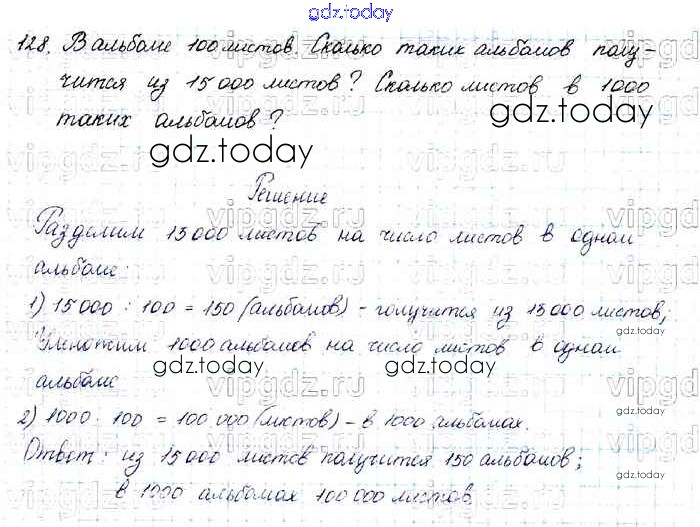 gdz.today
128. В альбоме 100 листов. Сколько таких альбомов полу-
чится из 15 000 листов? Сколько листов в 1000
таких альбомов?
gdz.today
gdz.today
Решение
Разделим 15 000 листов на число листов в одном
альбоме:
1) 15 000 : 100 = 150 (альбомов) - получится из 15 000 листов;
gdz.today
Умножим 1000 альбомов на число листов в одном
альбоме
gdz.today
gdz.today
2) 1000 · 100 = 100 000 (листов) - в 1000 альбомах.
gdz.today
Ответ: из 15 000 листов получится 150 альбомов;
gdz.today
в 1000 альбомах 100 000 листов
gdz.today